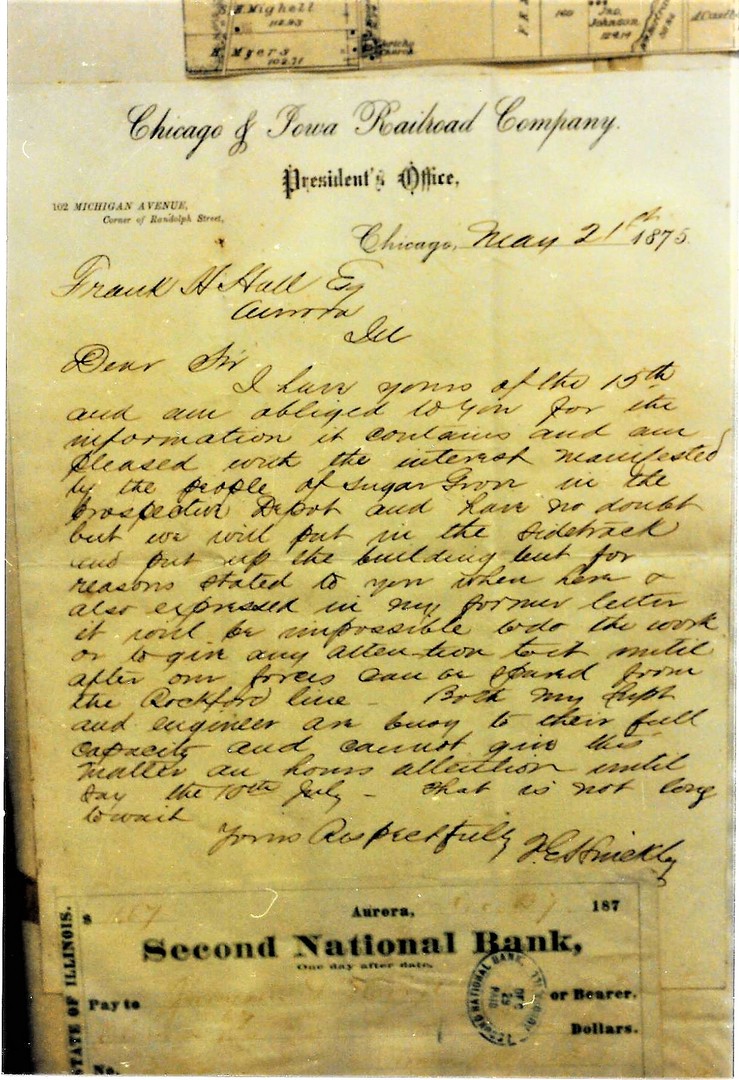 H. Mighell
112.93
H. Myers
102.71
Church
160
Jno.
Johnson
Chicago & Iowa Railroad Company.
President's Office,
102 MICHIGAN AVENUE,
Corner of Randolph Street,
Chicago, May 21st 1875.
Frank H Hall Esq
Aurora
Ill
Dear Sir
I have yours of the 15th
and am obliged to you for the
information it contains and am
pleased with the interest manifested
by the people of Sugar Grove in the
prospective Depot and have no doubt
but we will put in the sidetrack
and put up the building but for
reasons stated to you when here &
also expressed in my former letter
it will be impossible to do the work
or to give any attention to it until
after our forces can be spared from
the Rockford line - Both my Supt
and engineer are busy to their full
capacity and cannot give this
matter an hours attention until
say the 10th July - that is not long
to wait
Yours Respectfully F.E. Hinckley
STATE OF ILLINOIS.
$
Aurora, 187
Second National Bank,
One day after date,
Pay to or Bearer.
SECOND NATIONAL BANK,
DEC
PAID
Dollars.
No.